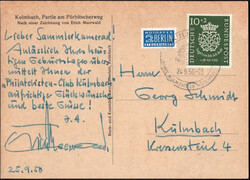 Kulmbach, Perle am Pörbitscherweg
Nach einer Zeichnung von Erich Maerwald
Lieber Sammlerkamerad!
Anlässlich Ihres heutigen
Geburtstages übermittelt
Ihnen der
Philatelisten-Club Kulmbach
aufrichtige Glückwünsche
und beste Grüße!
J. A.
25.9.50
NOTOPFER
2 BERLIN
STEUERMARKE
10+2
DEUTSCHE
BUNDESPOST
Herrn
Georg Schmidt
Kulmbach
Kressenstein 4